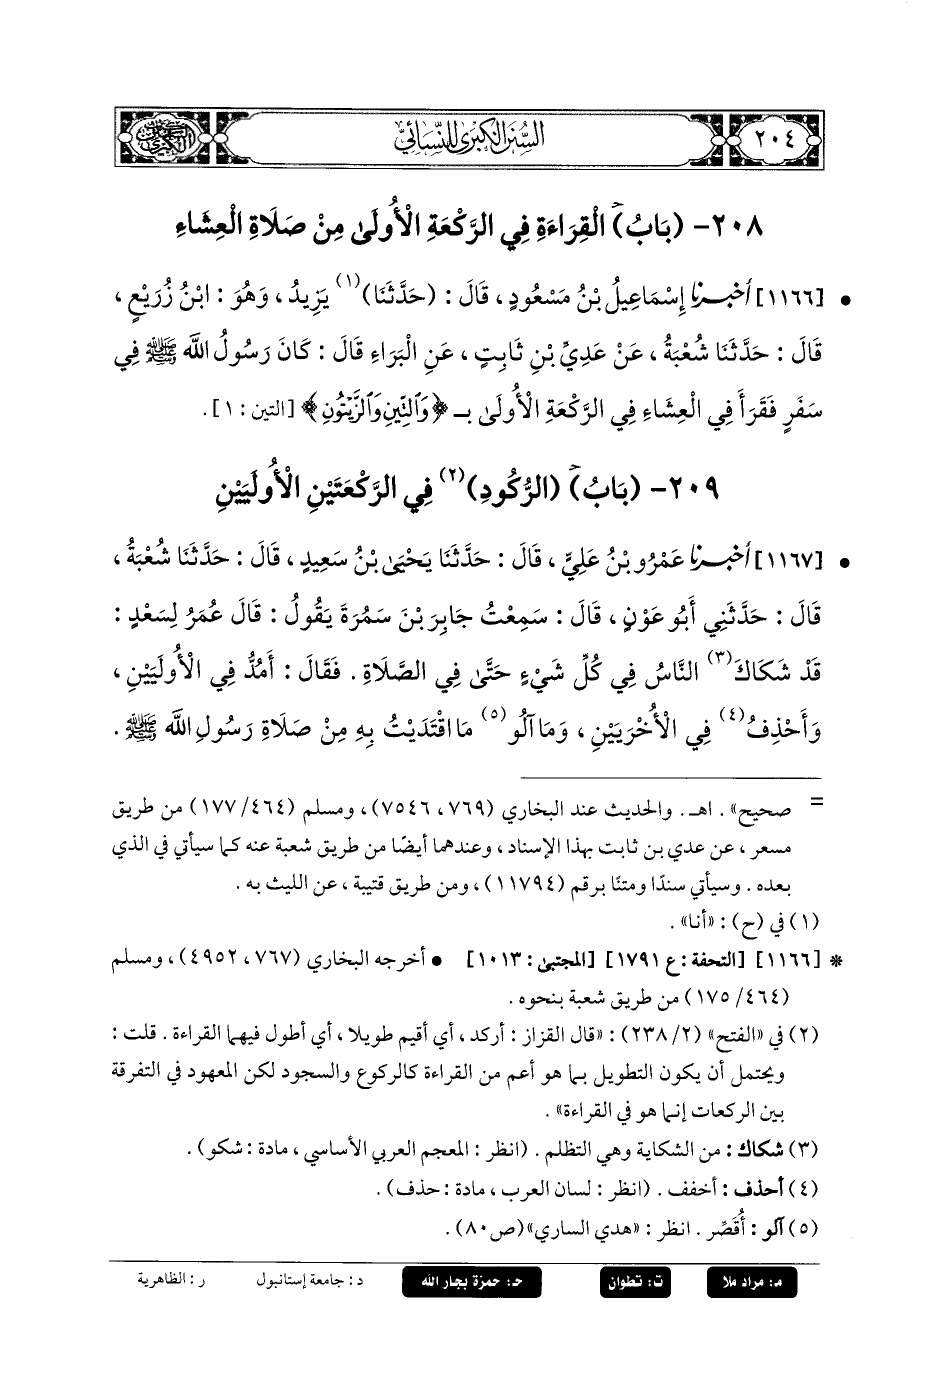 ٢٠٤
السنن الكبرى للنسائي
السنن الكبرى
٢٠٨- (بَابُ) الْقِرَاءَةِ فِي الرَّكْعَةِ الْأُولَىٰ مِنْ صَلَاةِ الْعِشَاءِ
• [١١٦٦] أخبرنا إِسْمَاعِيلُ بْنُ مَسْعُودٍ، قَالَ: (حَدَّثَنَا)(١) يَزِيدُ، وَهُوَ: ابْنُ زُرَيْعٍ،
قَالَ: حَدَّثَنَا شُعْبَةُ، عَنْ عَدِيِّ بْنِ ثَابِتٍ، عَنِ الْبَرَاءِ قَالَ: كَانَ رَسُولُ اللَّه ﷺ فِي
سَفَرٍ فَقَرَأَ فِي الْعِشَاءِ فِي الرَّكْعَةِ الْأُولَىٰ بـ ﴿وَٱلتِّينِ وَٱلزَّيْتُونِ﴾ [التين: ١].
٢٠٩- (بَابُ) (الرُّكُودِ)(٢) فِي الرَّكْعَتَيْنِ الْأُولَيَيْنِ
• [١١٦٧] أخبرنا عَمْرُو بْنُ عَلِيٍّ، قَالَ: حَدَّثَنَا يَحْيَىٰ بْنُ سَعِيدٍ، قَالَ: حَدَّثَنَا شُعْبَةُ،
قَالَ: حَدَّثَنِي أَبُو عَوْنٍ، قَالَ: سَمِعْتُ جَابِرَ بْنَ سَمُرَةَ يَقُولُ: قَالَ عُمَرُ لِسَعْدٍ:
قَدْ شَكَاكَ(٣) النَّاسُ فِي كُلِّ شَيْءٍ حَتَّىٰ فِي الصَّلَاةِ. فَقَالَ: أَمُدُّ فِي الْأُولَيَيْنِ،
وَأَحْذِفُ(٤) فِي الْأُخْرَيَيْنِ، وَمَا آلُو(٥) مَا اقْتَدَيْتُ بِهِ مِنْ صَلَاةِ رَسُولِ اللَّه ﷺ.
= صحيح». اهـ. والحديث عند البخاري (٧٦٩، ٧٥٤٦)، ومسلم (٤٦٤/ ١٧٧) من طريق
مسعر، عن عدي بن ثابت بهذا الإسناد، وعندهما أيضًا من طريق شعبة عنه كما سيأتي في الذي
بعده. وسيأتي سندًا ومتنًا برقم (١١٧٩٤)، ومن طريق قتيبة، عن الليث به.
(١) في (ح): «أنا».
* [١١٦٦] [التحفة: ع ١٧٩١] [المجتبى: ١٠١٣] • أخرجه البخاري (٧٦٧، ٤٩٥٢)، ومسلم
(٤٦٤/ ١٧٥) من طريق شعبة بنحوه.
(٢) في «الفتح» (٢/ ٢٣٨): «قال القزاز: أركد، أي أقيم طويلا، أي أطول فيهما القراءة. قلت:
ويحتمل أن يكون التطويل بما هو أعم من القراءة كالركوع والسجود لكن المعهود في التفرقة
بين الركعات إنما هو في القراءة».
(٣) شكاك: من الشكاية وهي التظلم. (انظر: المعجم العربي الأساسي، مادة: شكو).
(٤) أحذف: أخفف. (انظر: لسان العرب، مادة: حذف).
(٥) آلو: أُقَصِّر. انظر: «هدي الساري» (ص٨٠).
مـ: مراد ملا ت: تطوان حـ: حمزة بجار الله د: جامعة إستانبول ر: الظاهرية